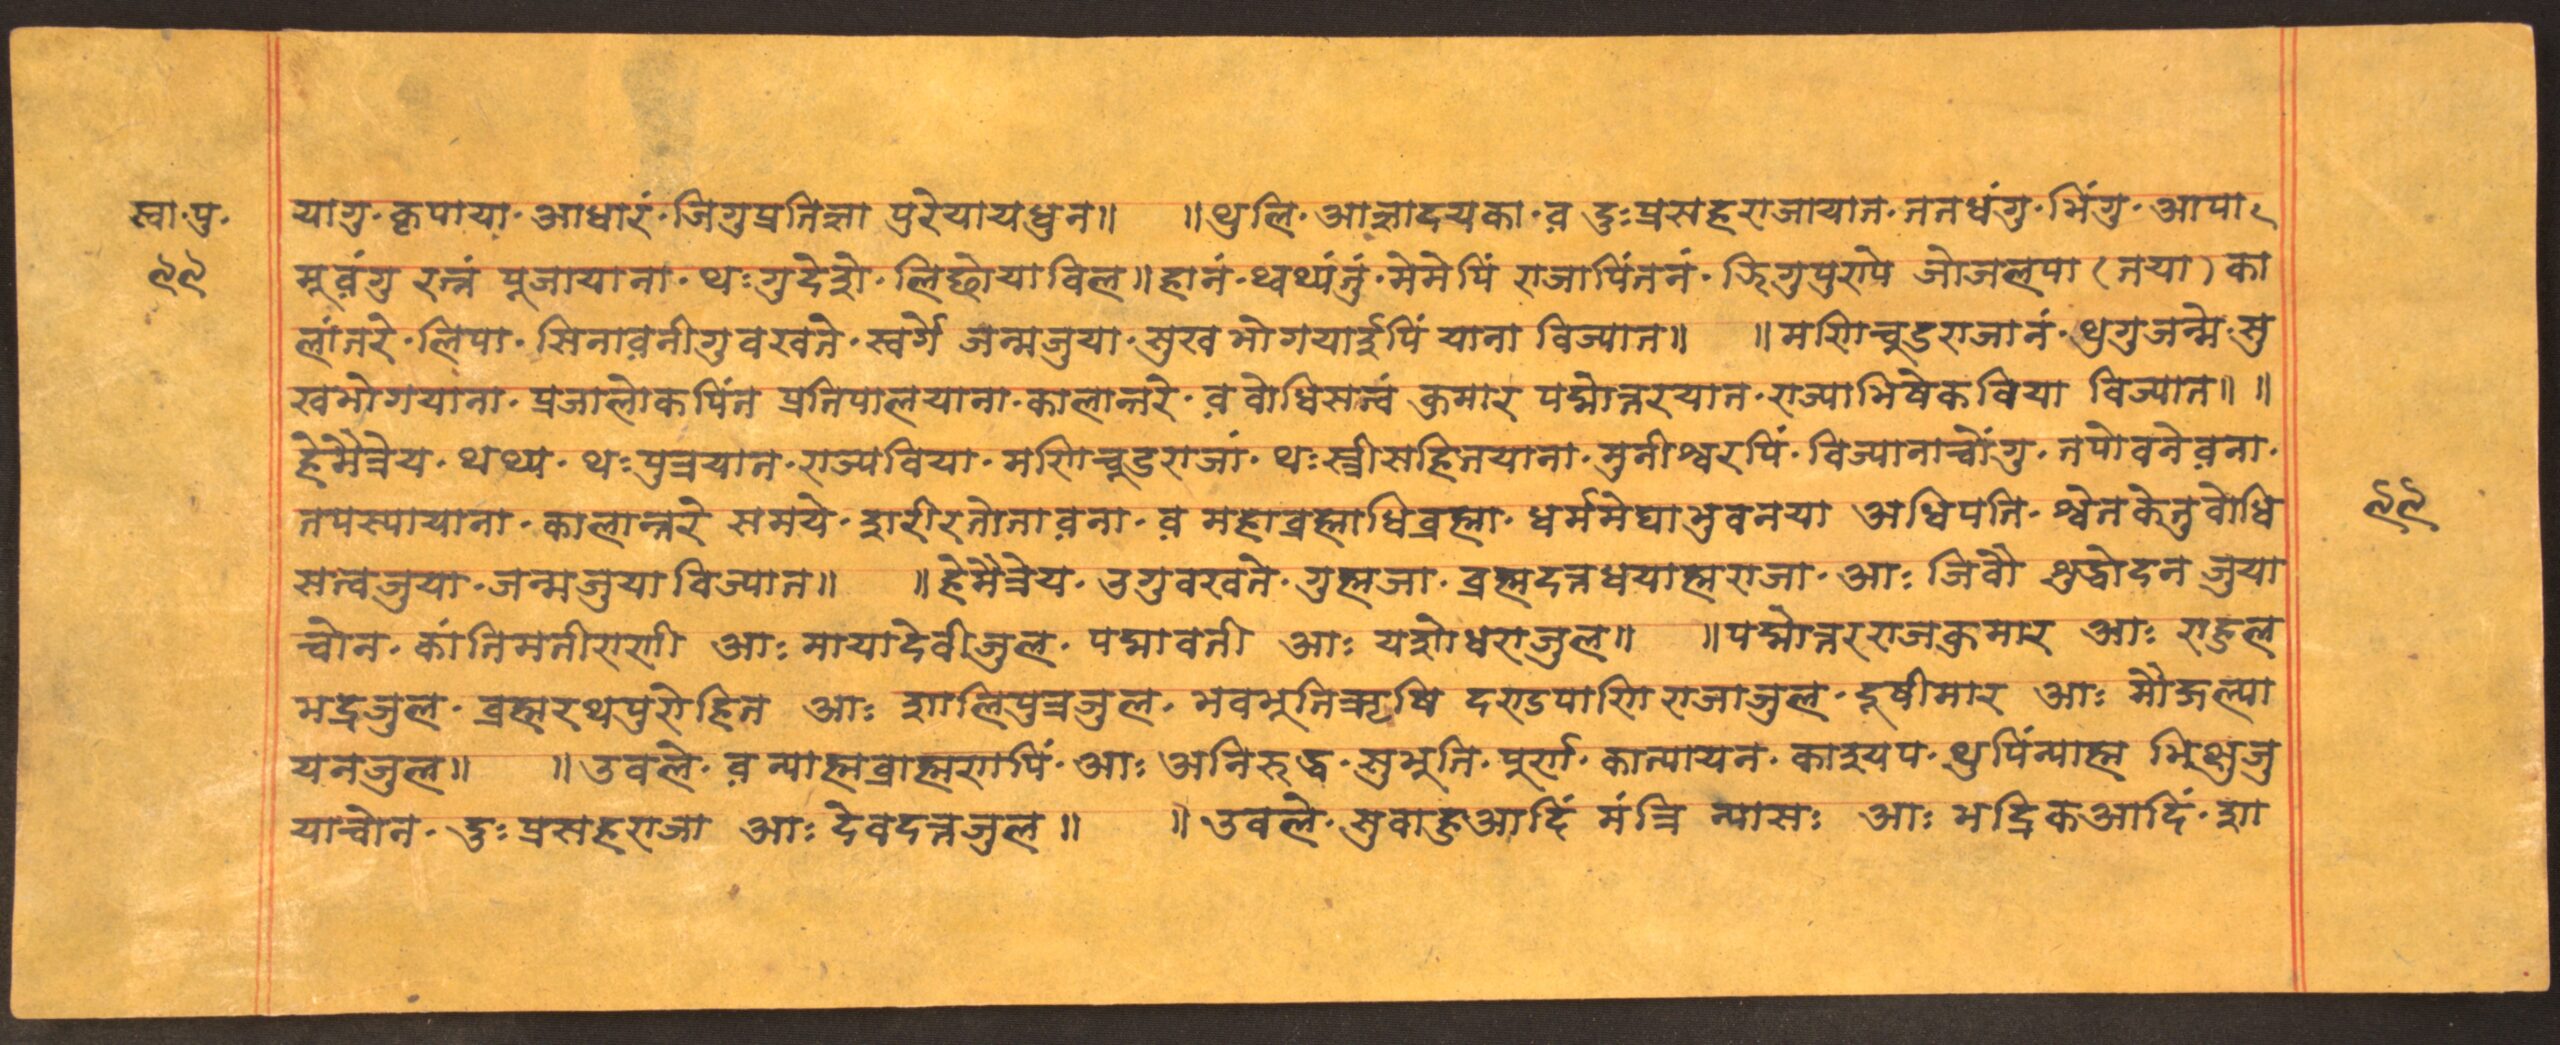 स्वा·पु·
९९
यागु·कृपाया·आधारं·जिगुप्रतिज्ञा पुरेयायधुन॥ ॥थुलि·आज्ञादयका·व़ दुःप्रसहराजायात·ततधंगु·भिंगु·आपा·
मूव़ंगु रत्नं पूजायाना·थःगुदेशे·लिछोयाविल॥हानं·थ्वथ्यंतुं·मेमेपिं राजापिंतनं·जिगुपुराणे जोजलपा (तया) का
लांतरे·लिपा·सिनाव़नीगुवखते·स्वर्गे जन्मजुया·सुखभोगयाईपिं याना विज्यात॥ ॥मणिचूडराजानं·थुगुजन्मे·सु
खभोगयाना·प्रजालोकपिंत प्रतिपालयाना·कालान्तरे·व़ वोधिसत्वं कुमार पद्मोत्तरयात·राज्याभिषेकविया विज्यात॥ ॥
हेमैत्रेय·थथ्य·थःपुत्रयात·राज्यविया·मणिचूडराजां·थःस्त्रीसहितयाना·मुनीश्वरपिं·विज्यानाच्वोंगु·तपोवनेव़ना·
तपस्यायाना·कालान्तरे समये·शरीरतोताव़ना·व़ महाब्रह्माधिब्रह्मा·धर्ममेघाभुवनया अधिपति·श्वेतकेतुवोधि
सत्वजुया·जन्मजुयाविज्यात॥ ॥हेमैत्रेय·उगुवखते·गुह्मजा·ब्रह्मदत्तधयाह्मराजा·आः जिवौ शुद्धोदन जुया
च्वोन·कांतिमतीराणी आः मायादेवीजुल·पद्मावती आः यशोधराजुल॥ ॥पद्मोत्तरराजकुमार आः राहुल
भद्रजुल·ब्रह्मरथपुरोहित आः शालिपुत्रजुल·भवभूतिऋषि दण्डपाणि राजाजुल·दूषीमार आः मौद्गल्या
यनजुल॥ ॥उवले·व़ न्याह्मब्राह्मणपिं·आः अनिरुद्ध·सुभूति·पूर्ण·कात्यायन·काश्यप·थुपिंन्याह्म भिक्षुजु
याच्वोन·दुःप्रसहराजा आः देवदत्तजुल॥ ॥उवले·सुवाहुआदिं मंत्रि न्यासः आः भद्रिकआदिं·शा
९९